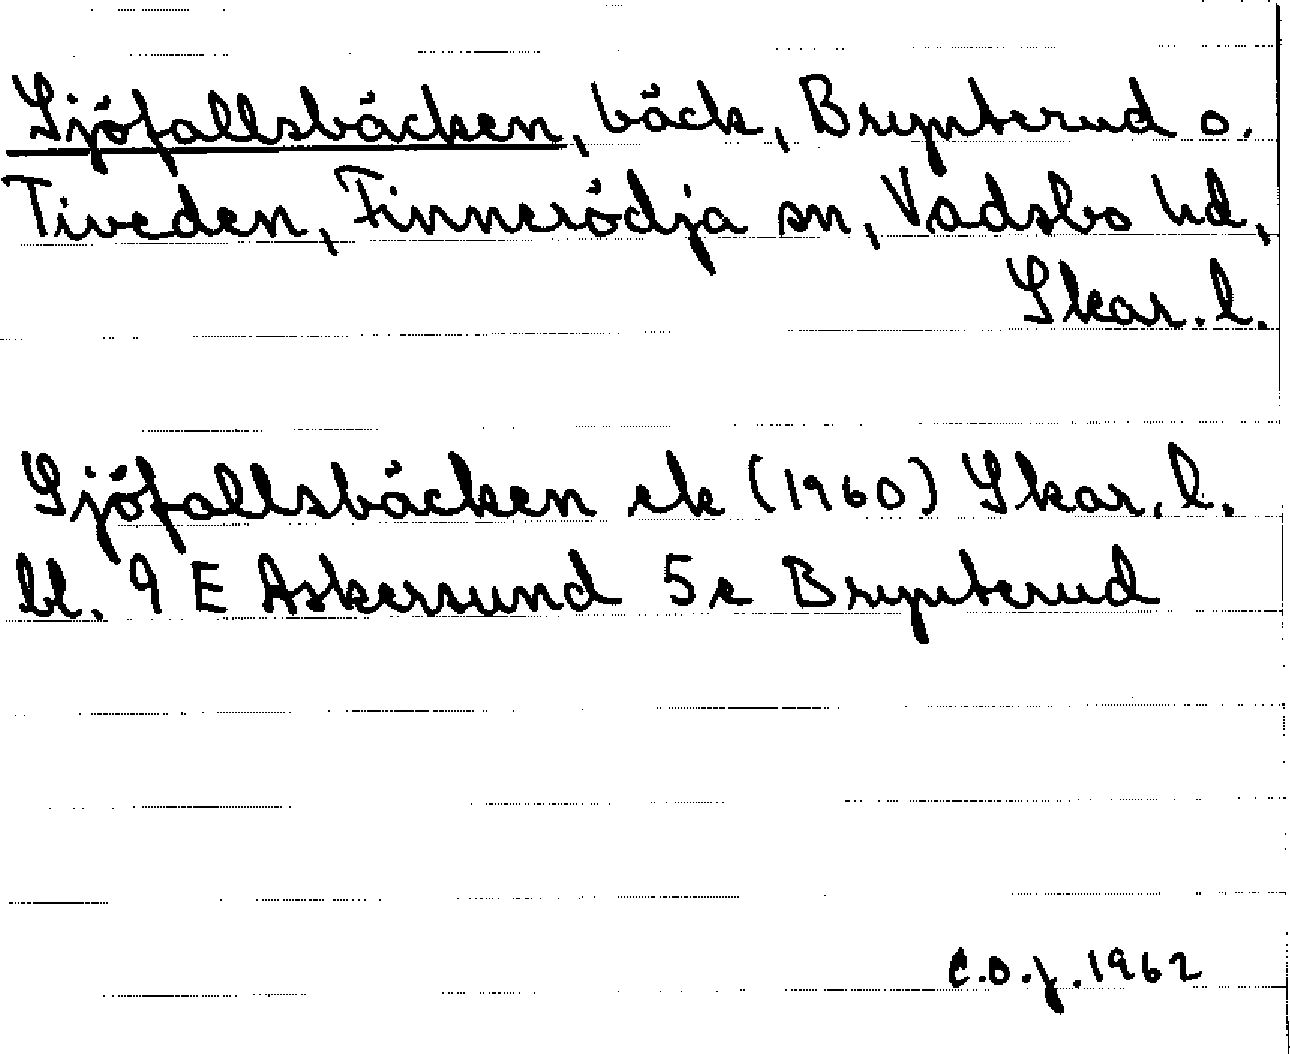 Sjöfallsbäcken, bäck, Brynterud o.
Tiveden, Finnerödja sn, Vadsbo hd,
Skar. l.
Sjöfallsbäcken ek (1960) Skar. l.
bl. 9 E Askersund 5 e Brynterud
C.O.J. 1962